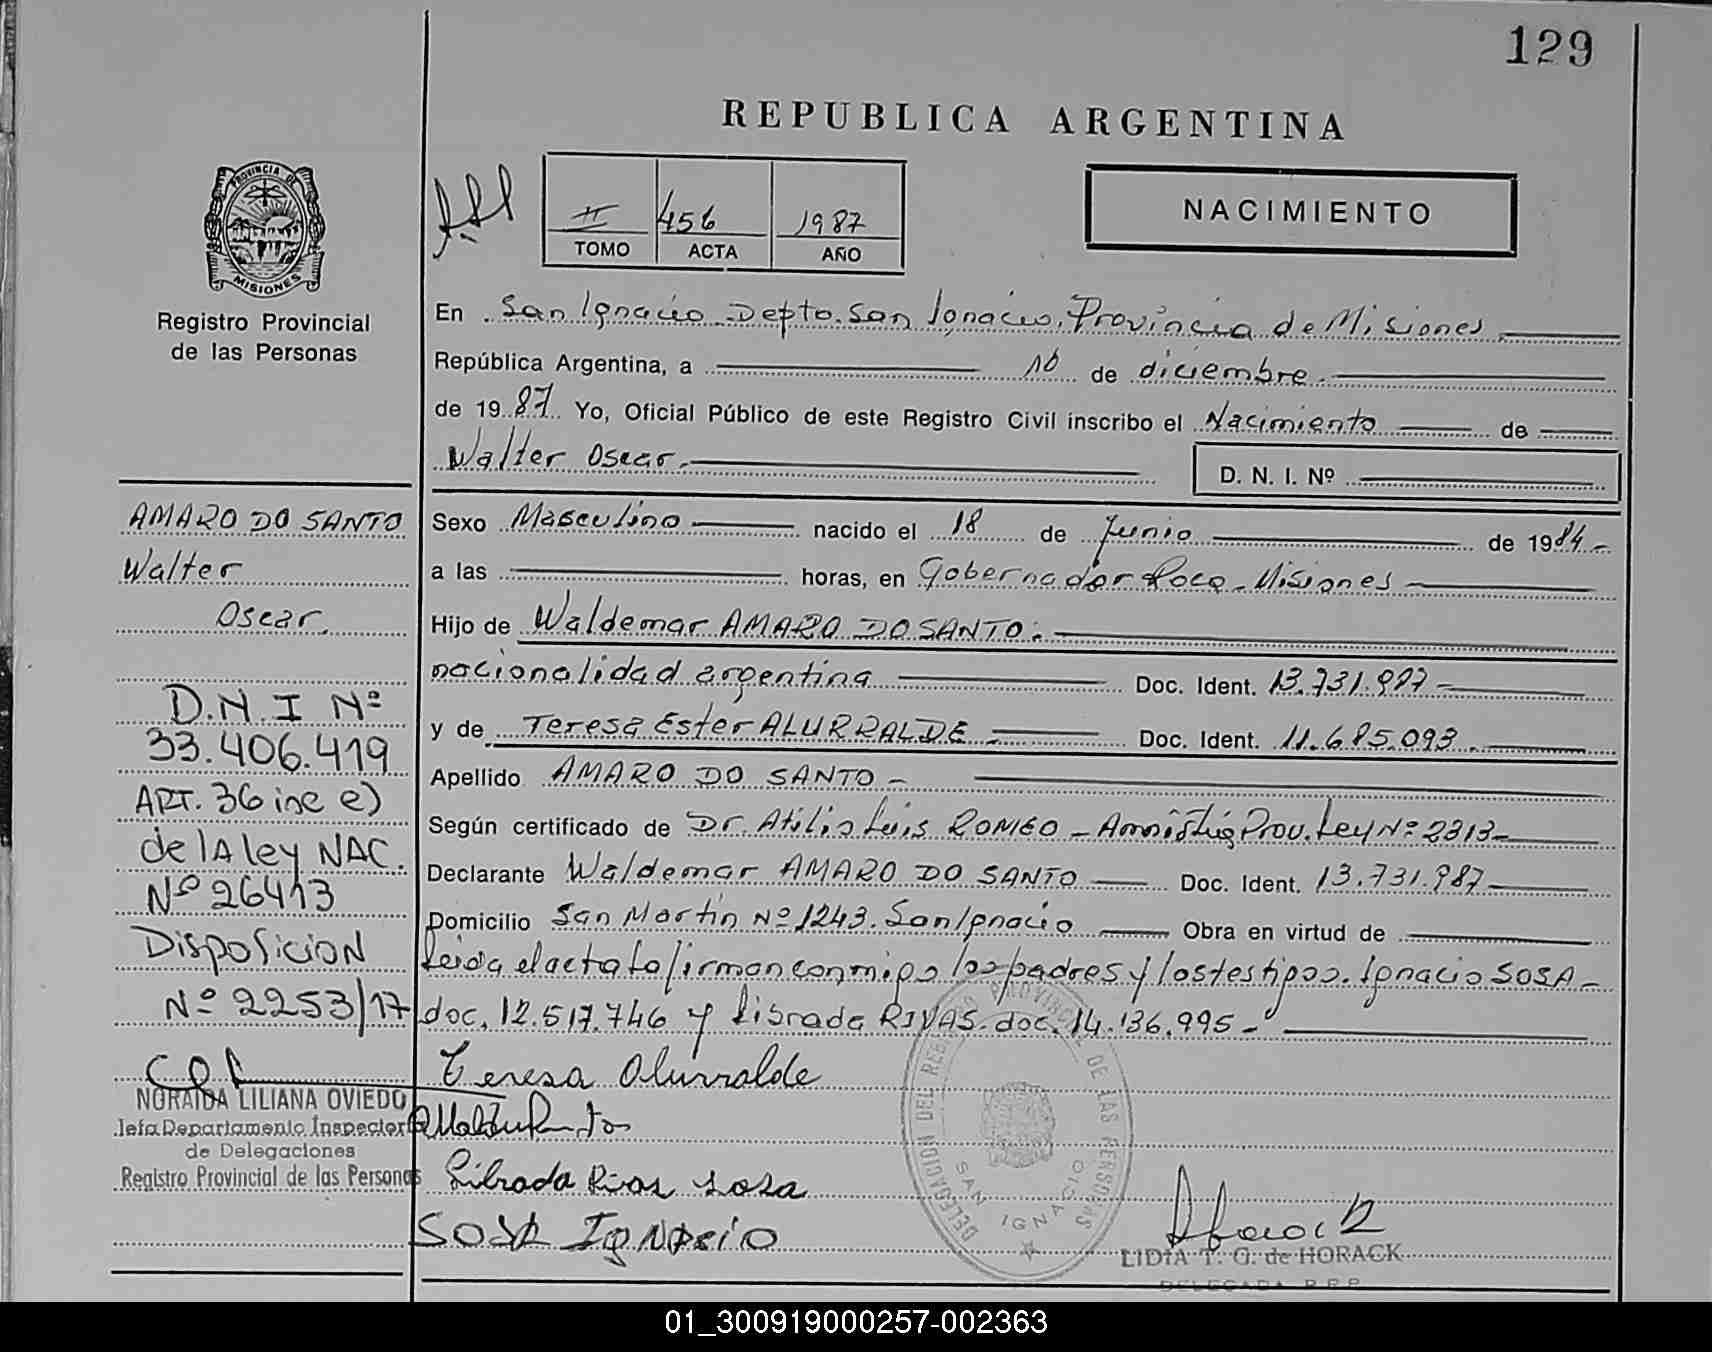 129
REPUBLICA ARGENTINA
PROVINCIA DE
MISIONES
Registro Provincial
de las Personas
II 456 1987
TOMO ACTA AÑO
NACIMIENTO
En San Ignacio Depto. San Ignacio, Provincia de Misiones
República Argentina, a 10 de diciembre.
de 1987 Yo, Oficial Público de este Registro Civil inscribo el Nacimiento de
Walter Oscar.
D. N. I. Nº
Sexo Masculino nacido el 18 de Junio de 1984.-
a las horas, en Gobernador Roca - Misiones
Hijo de Waldemar AMARO DO SANTO.
nacionalidad argentina Doc. Ident. 13.731.987
y de Teresa Ester ALURRALDE Doc. Ident. 11.685.093.
Apellido AMARO DO SANTO -
Según certificado de Dr. Atilio Luis ROMEO - Amnistía Prov. Ley Nº 2313
Declarante Waldemar AMARO DO SANTO Doc. Ident. 13.731.987
Domicilio San Martin Nº 1243. San Ignacio Obra en virtud de
Leida el acta la firman conmigo los padres y los testigos. Ignacio SOSA -
doc. 12.517.746 y Librada RIVAS. doc. 14.136.995 -
AMARO DO SANTO
Walter
Oscar.
D.N.I Nº
33.406.419
ART. 36 inc e)
de lA ley NAC.
Nº 26413
Disposicion
Nº 2253/17
NORAIDA LILIANA OVIEDO
Jefa Departamento Inspector
de Delegaciones
Registro Provincial de las Personas
Teresa Alurralde
Librada Rivas Sosa
SOSA IGNACIO
DELEGACION DEL REGISTRO PROVINCIAL DE LAS PERSONAS
SAN IGNACIO
LIDIA T. G. de HORACK
DELEGADA R.P.P.
01_300919000257-002363